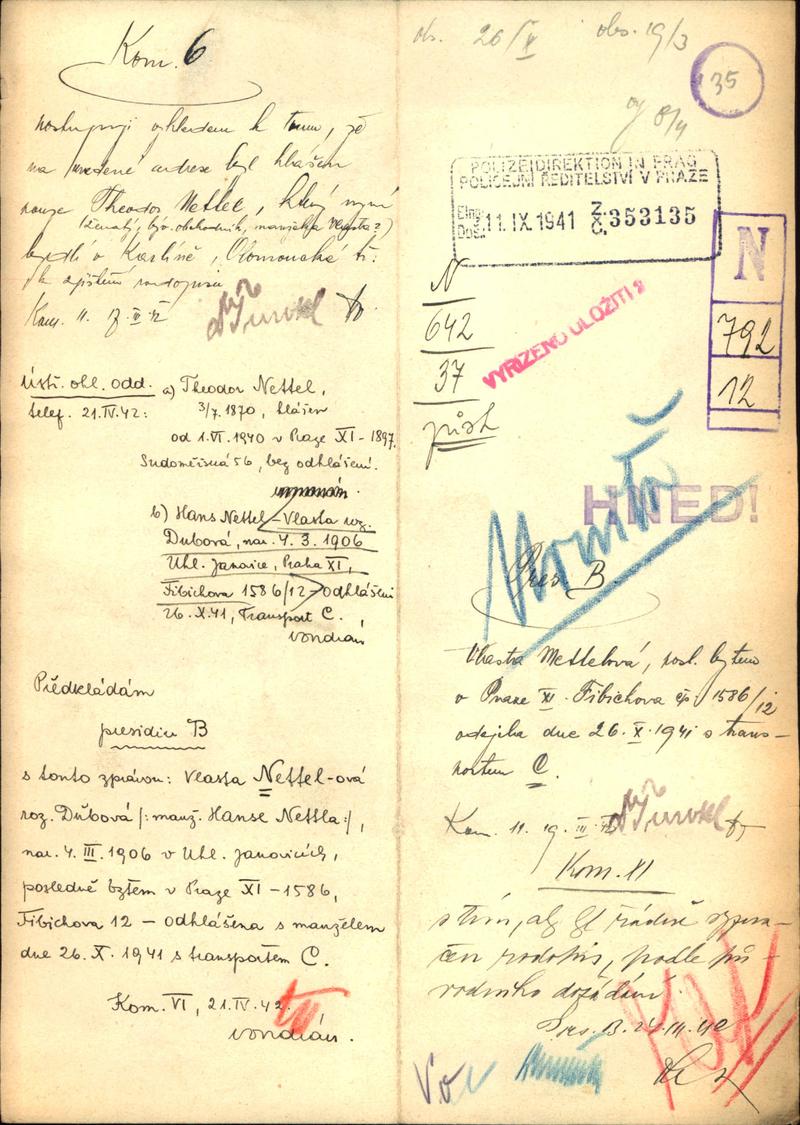 Kom. 6
postupuji vzhledem k tomu, že
na uvedené adrese byl hlášen
pouze Theodor Nettel, který nyní
(ženatý, býv. obchodník, manželka Vlasta?)
bydlí v Karlíně, Olomoucká tř.
k zjištění rodopisu
Kom. 11. 7. IV. 42
Ústř. ohl. odd. a) Theodor Nettel,
telef. 21.IV.42: 3/7. 1870, hlášen
od 1.VI.1940 v Praze XI-1897,
Sudoměřská 56, bez odhlášení.
b) Hans Nettel - Vlasta roz.
Dubová, nar. 4. 3. 1906
Uhl. Janovice, Praha XI,
Fibichova 1586/12 - odhlášeni
26.X.41, Transport C.
Vondrán
Předkládám
presidiu B
s touto zprávou: Vlasta Nettel-ová
roz. Dubová /: manž. Hanse Nettla:/,
nar. 4. III. 1906 v Uhl. Janovicích,
posledně bytem v Praze XI - 1586,
Fibichova 12 - odhlášena s manželem
dne 26. X. 1941 s transportem C.
Kom. VI, 21.IV.42.
Vondrán.
obs. 26/V obs. 19/3
35
8/4
POLIZEIDIREKTION IN PRAG
POLICEJNÍ ŘEDITELSTVÍ V PRAZE
Eing.
Došl. 11. IX. 1941 Z.
Č. 353135
N
792
12
N
642
37
přísl
VYŘÍZENO ULOŽITI
HNED!
Pres. B.
Vlasta Nettelová, posl. bytem
v Praze XI. Fibichova čp. 1586/12
odejela dne 26. X. 1941 s trans-
portem C.
Kom. 11. 19. III. 42
Kom. XI
s tím, aby byl řádně vypra-
cen rodopis, podle pů-
vodního dožádání.
Pres. B. 24.III.42